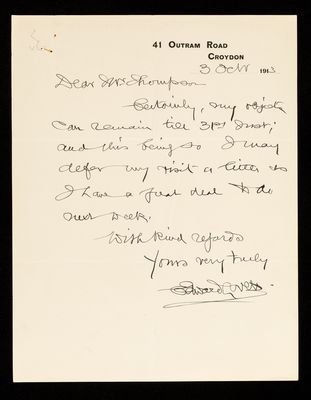 41 OUTRAM ROAD
CROYDON
3 Octr 1913
Dear Mrs Thompson
Certainly, my objects
can remain till 31st Inst;
and this being so I may
defer my visit a little as
I have a great deal to do
next week.
With kind regards
Yours very truly
Edward Lovett